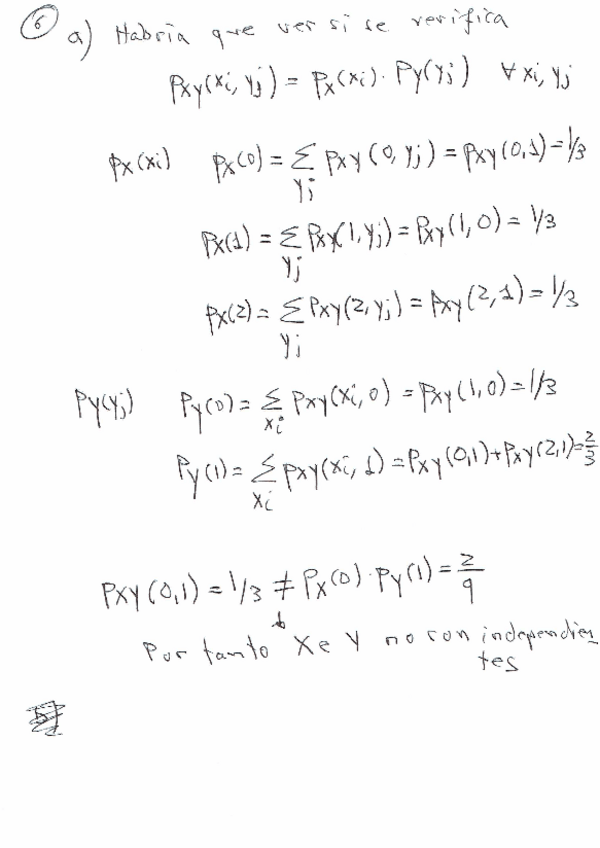 ⑥ a) Habría que ver si se verifica
Pxy(xi, yj) = px(xi) · Py(yj) ∀ xi, yj
px(xi) px(0) = Σyj pxy(0, yj) = pxy(0,1) = 1/3
px(1) = Σyj Pxy(1, yj) = Pxy(1,0) = 1/3
px(2) = Σyj Pxy(2, yj) = pxy(2,1) = 1/3
Py(yj) Py(0) = Σxi Pxy(xi, 0) = Pxy(1,0) = 1/3
Py(1) = Σxi pxy(xi, 1) = Pxy(0,1) + Pxy(2,1) = 2/3
Pxy(0,1) = 1/3 ≠ Px(0) · Py(1) = 2/9
Por tanto X e Y no con independien
tes